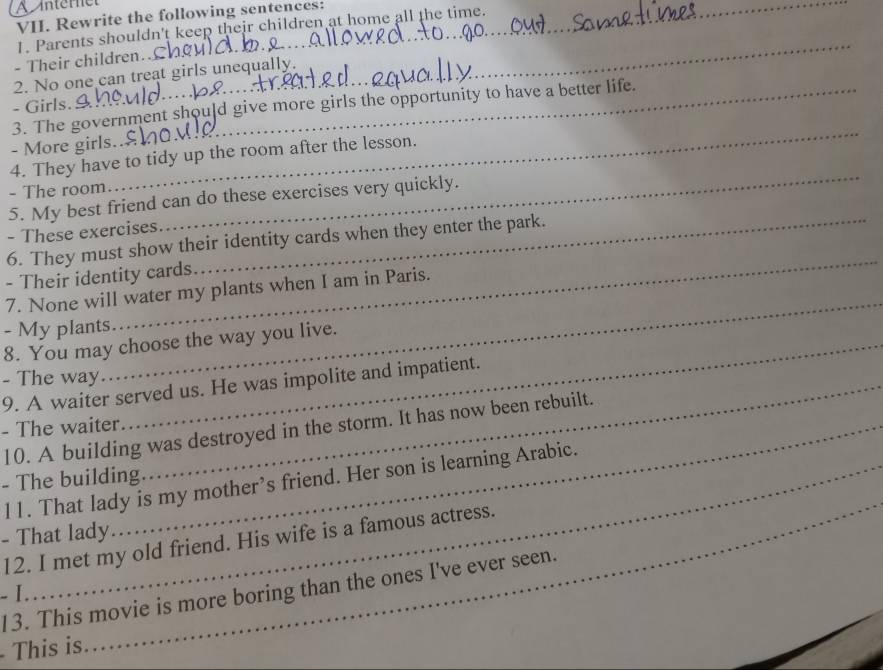 A. Internet
VII. Rewrite the following sentences:
1. Parents shouldn't keep their children at home all the time.
- Their children should be allowed to go out sometimes
2. No one can treat girls unequally.
- Girls should be treated equally
3. The government should give more girls the opportunity to have a better life.
- More girls should
4. They have to tidy up the room after the lesson.
- The room
5. My best friend can do these exercises very quickly.
- These exercises
6. They must show their identity cards when they enter the park.
- Their identity cards
7. None will water my plants when I am in Paris.
- My plants
8. You may choose the way you live.
- The way
9. A waiter served us. He was impolite and impatient.
- The waiter
10. A building was destroyed in the storm. It has now been rebuilt.
- The building
11. That lady is my mother's friend. Her son is learning Arabic.
- That lady
12. I met my old friend. His wife is a famous actress.
- I
13. This movie is more boring than the ones I've ever seen.
- This is